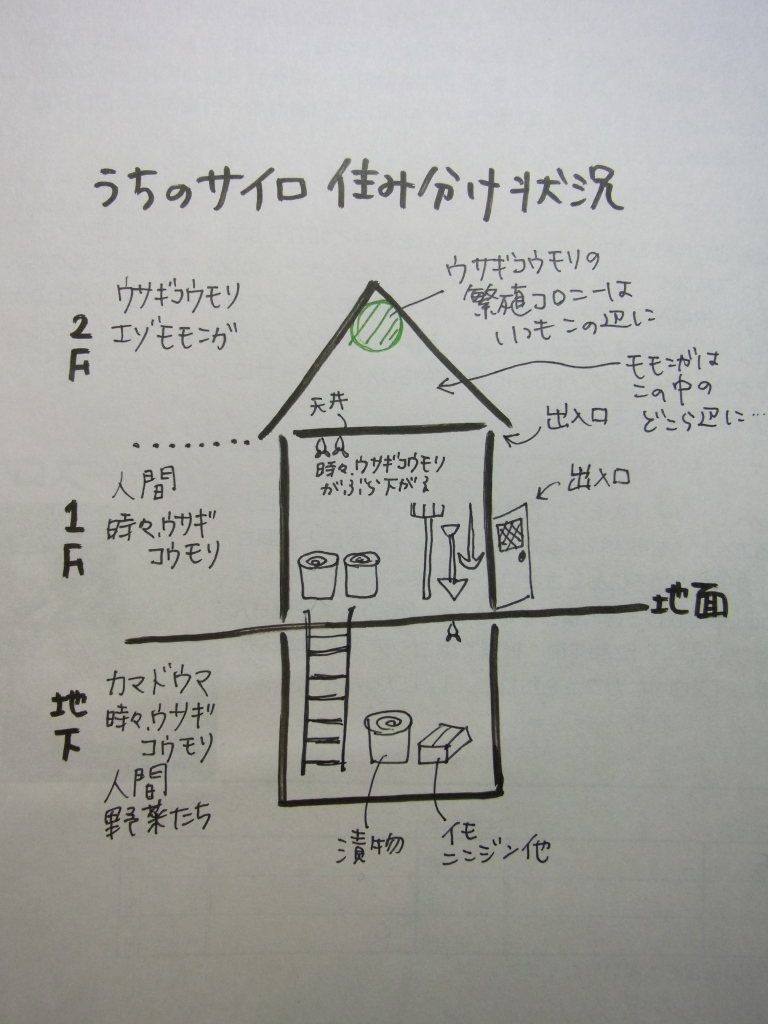 うちのサイロ 住み分け状況
2F
ウサギコウモリ
エゾモモンガ
ウサギコウモリの
繁殖コロニーは
いつもこの辺に
モモンガは
この中の
どこら辺に…
天井
出入口
時々、ウサギコウモリ
がぶら下がる
出入口
1F
人間
時々、ウサギ
コウモリ
地面
地下
カマドウマ
時々、ウサギ
コウモリ
人間
野菜たち
漬物
イモ
ニンジン他